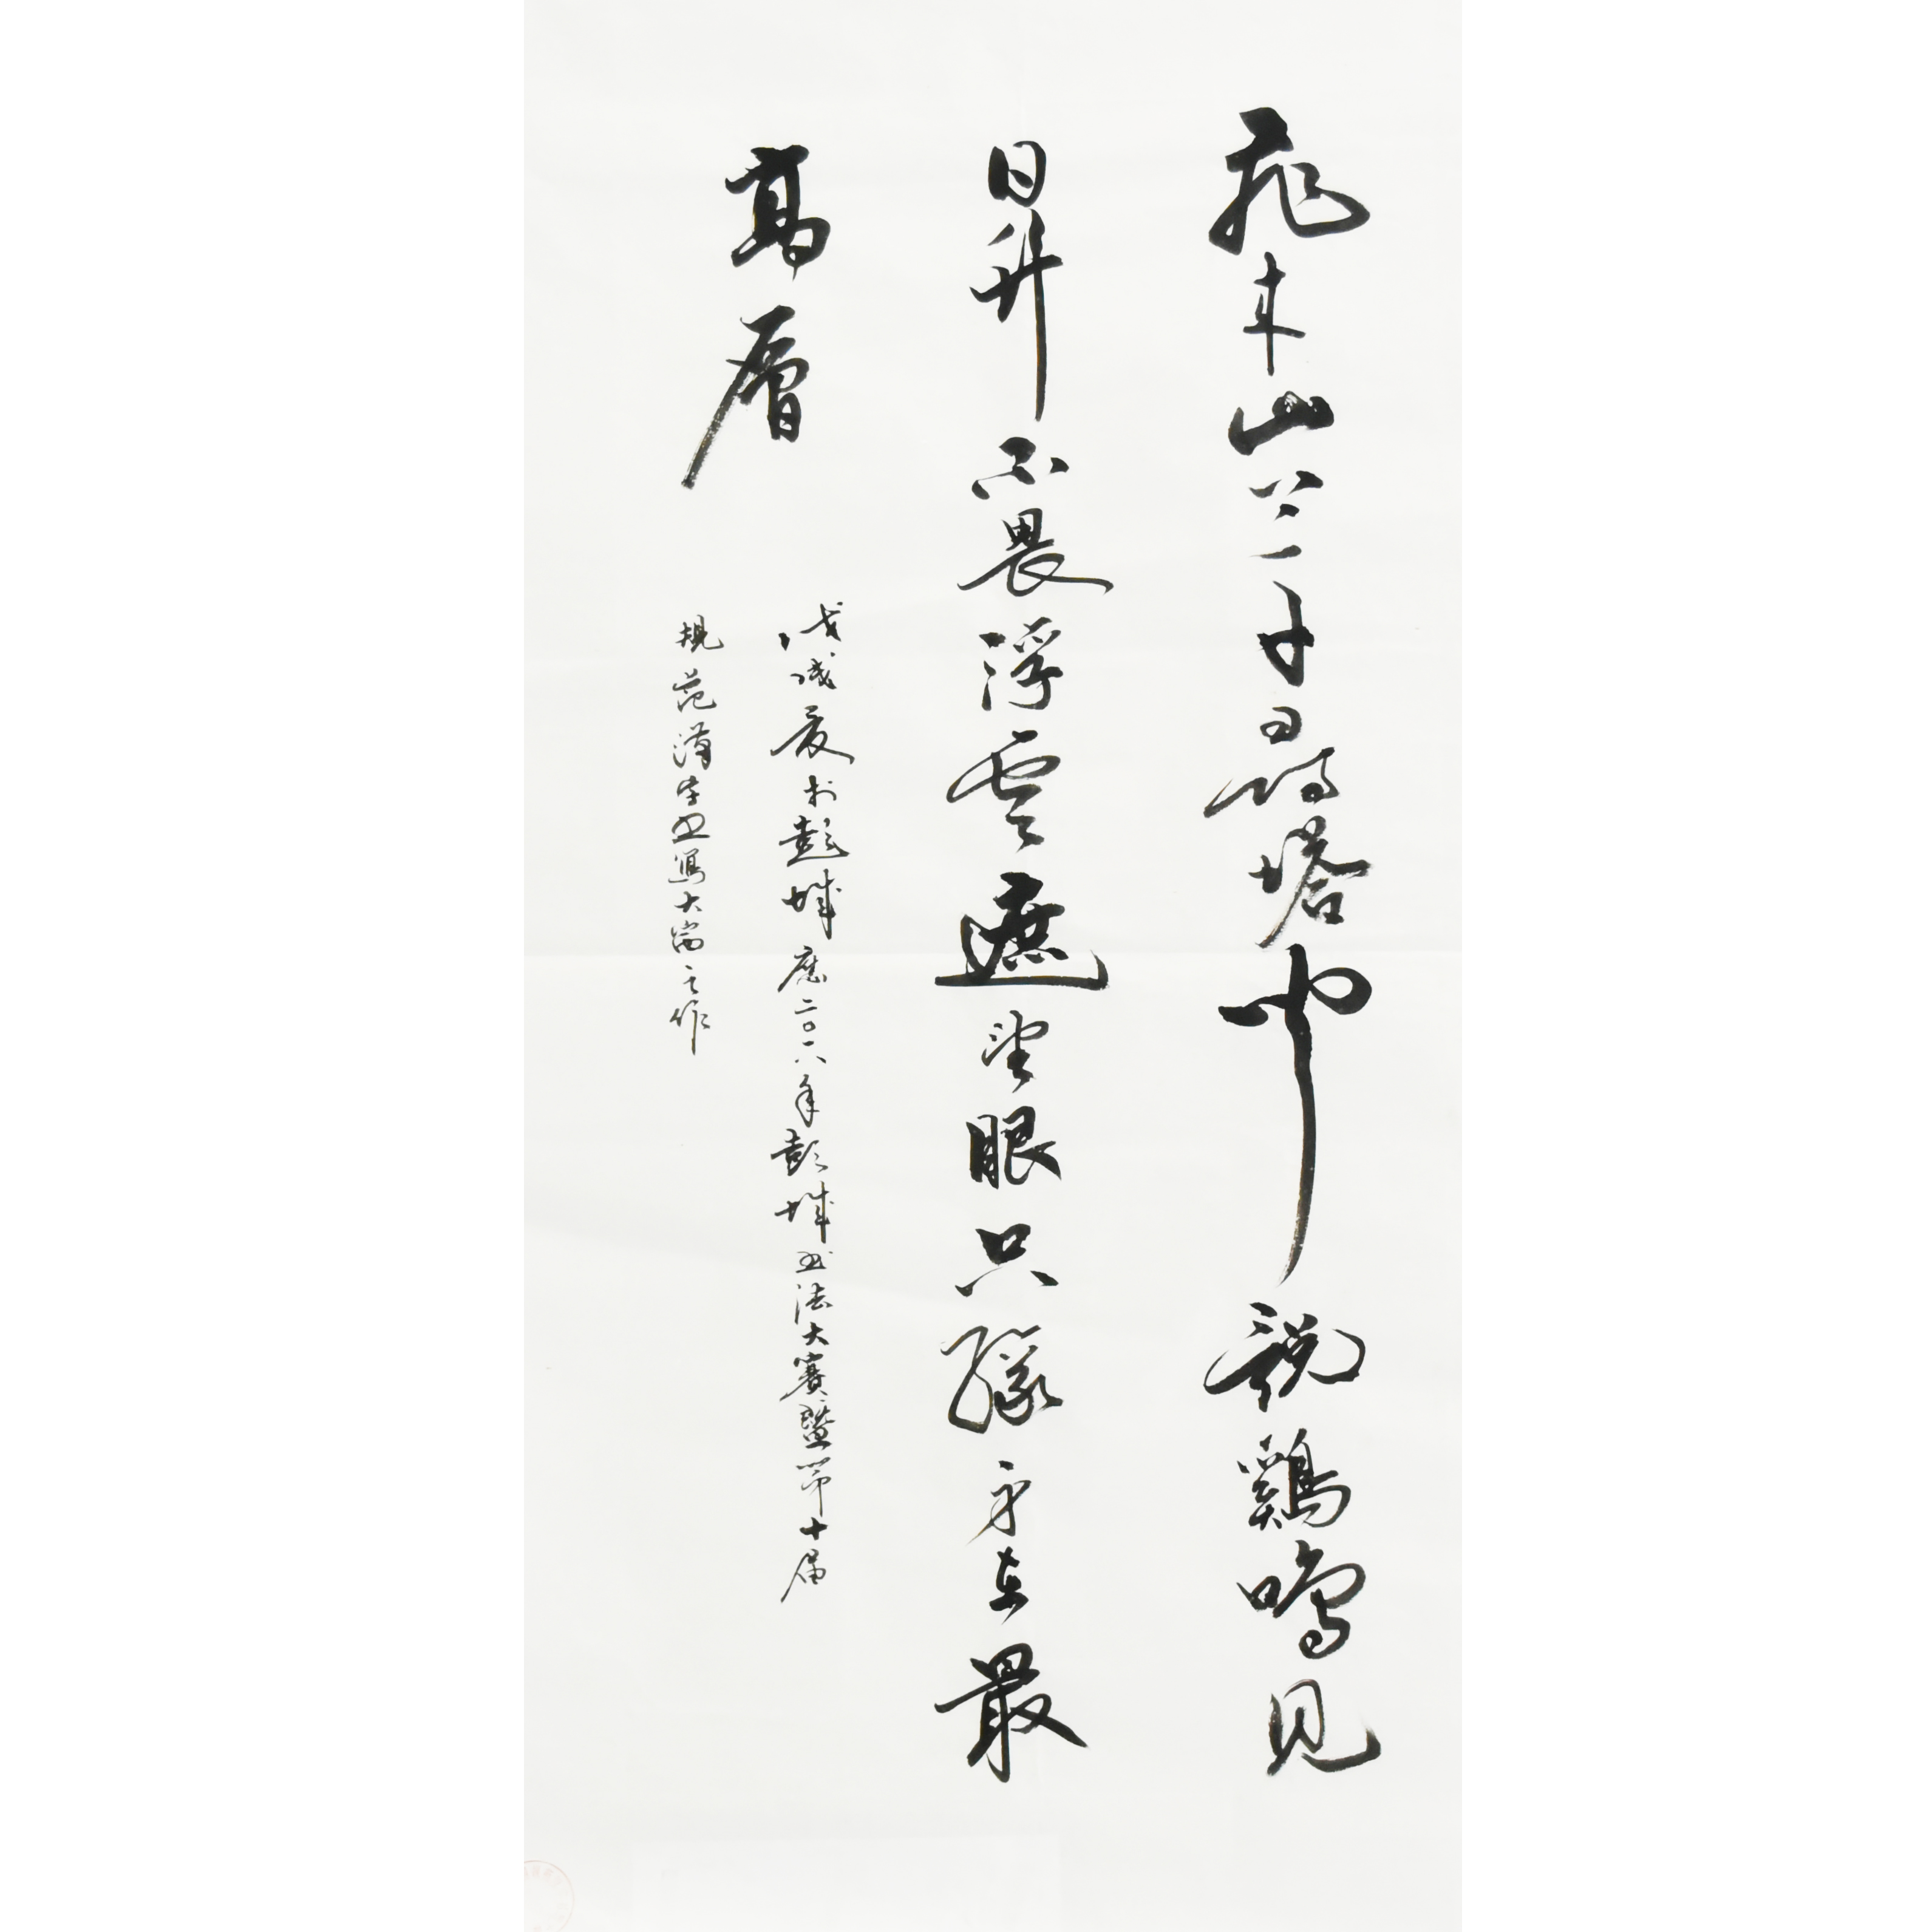 飛来山上千尋塔聞說鷄鳴見
日升不畏浮雲遮望眼只緣身在最
高層
戊戌夏於彭城應二〇一八年彭城書法大賽暨第十届
規范漢字書寫大賽之作